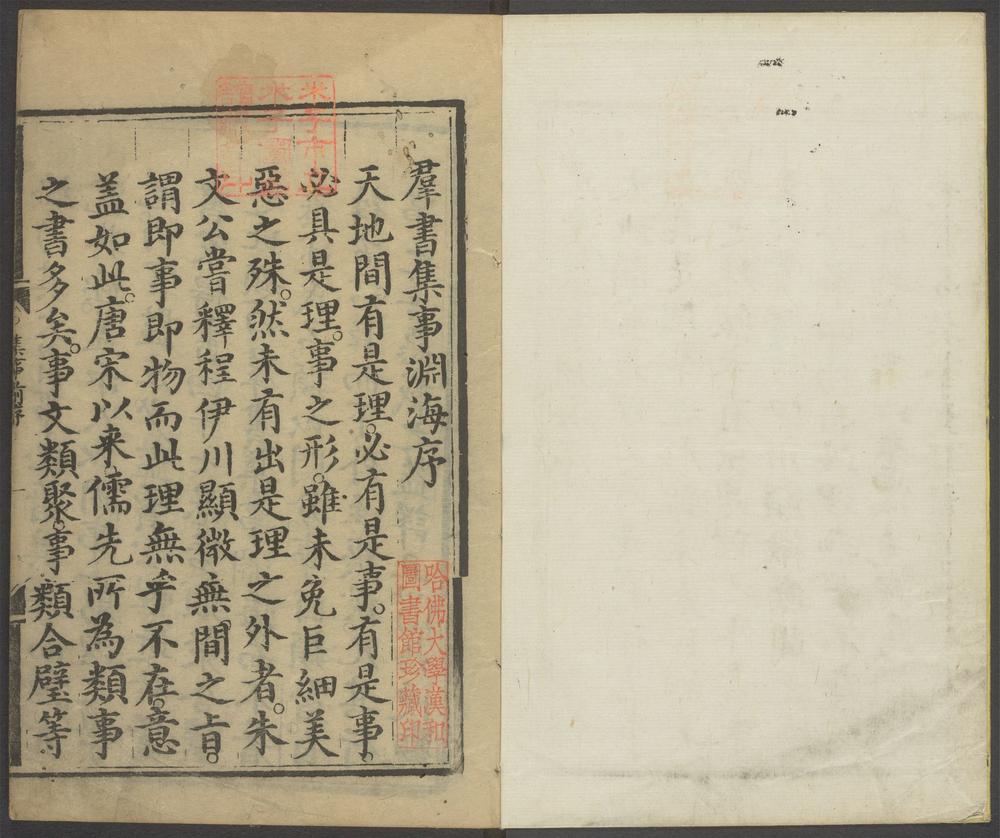 羣書集事淵海序
天地間有是理。必有是事。有是事。
必具是理。事之形。雖未免巨細美
惡之殊。然未有出是理之外者。朱
文公嘗釋程伊川顯微無間之旨。
謂即事即物而此理無乎不在。意
盖如此。唐宋以来儒先所為類事
之書多矣。事文類聚。事類合璧等
集事前序
哈佛大學漢和
圖書館珍藏印